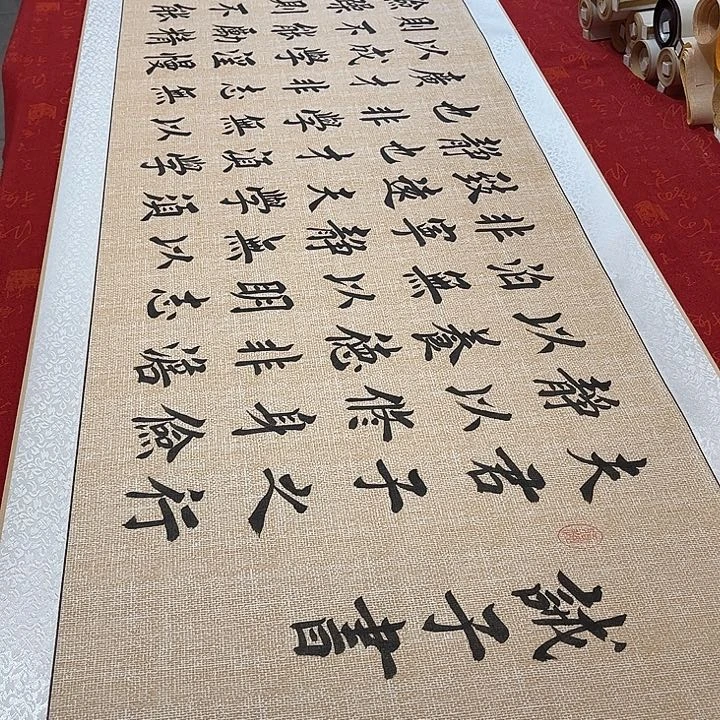 誡子書
夫君子之行
靜以修身儉
以養德非澹
泊無以明志
非寧靜無以
致遠夫學須
靜也才須學
也非學無以
廣才非志無
以成學淫慢
則不能勵精
則不能